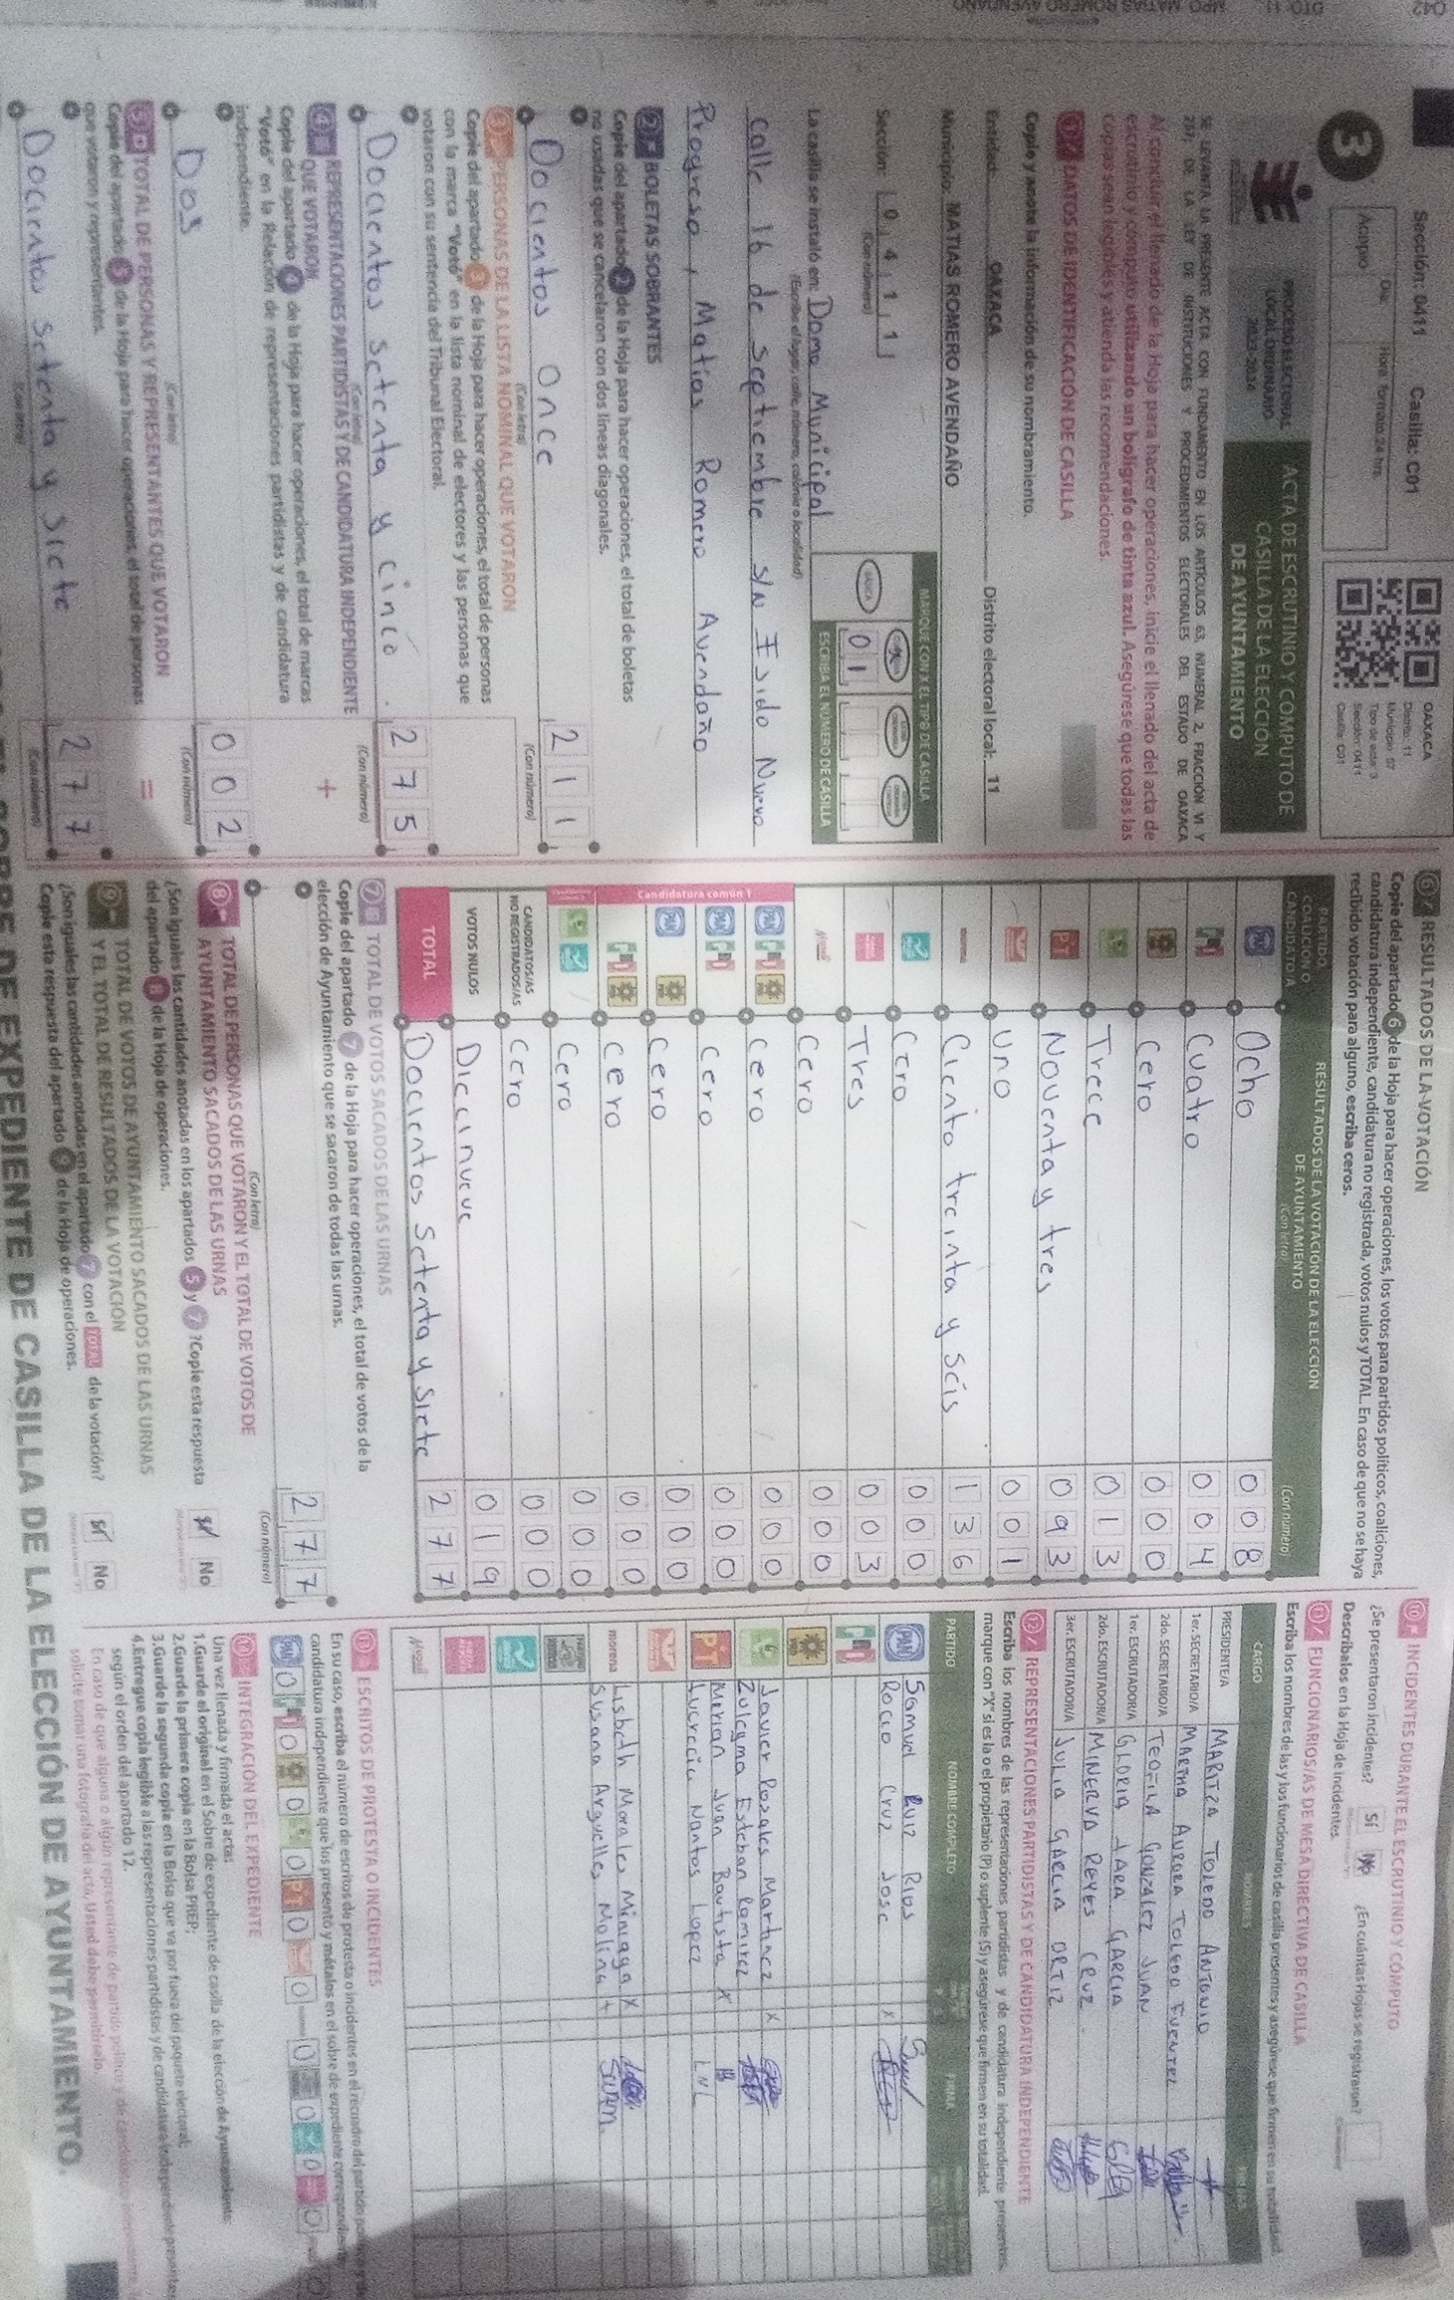 042
DTO: 11
MPO: MATIAS ROMERO AVENDAÑO
Sección: 0411 Casilla: C01
Día: Hora: formato 24 hrs.
Acopio
3
PROCESO ELECTORAL
LOCAL ORDINARIO
2023-2024
ACTA DE ESCRUTINIO Y CÓMPUTO DE
CASILLA DE LA ELECCIÓN
DE AYUNTAMIENTO
OAXACA
Distrito: 11
Municipio: 57
Tipo de acta: 3
Sección: 0411
Casilla: C01
SE LEVANTA LA PRESENTE ACTA CON FUNDAMENTO EN LOS ARTÍCULOS 63, NUMERAL 2, FRACCIÓN VI Y
237; DE LA LEY DE INSTITUCIONES Y PROCEDIMIENTOS ELECTORALES DEL ESTADO DE OAXACA
Al concluir el llenado de la Hoja para hacer operaciones, inicie el llenado del acta de
escrutinio y cómputo utilizando un bolígrafo de tinta azul. Asegúrese que todas las
copias sean legibles y atienda las recomendaciones.
1 DATOS DE IDENTIFICACIÓN DE CASILLA
Copie y anote la información de su nombramiento.
Entidad: OAXACA Distrito electoral local: 11
Municipio: MATIAS ROMERO AVENDAÑO
Sección: 0 4 1 1
(Con número)
MARQUE CON X EL TIPO DE CASILLA
ESCRIBA EL NÚMERO DE CASILLA
0 1
La casilla se instaló en: Domo Municipal
(Escriba el lugar, calle, número, colonia o localidad)
calle 16 de septiembre S/N Isido Nuevo
Progreso, Matías Romero Avendaño
2 BOLETAS SOBRANTES
Copie del apartado 2 de la Hoja para hacer operaciones, el total de boletas
no usadas que se cancelaron con dos líneas diagonales.
Docientos once 2 1 1
(Con letra) (Con número)
3 PERSONAS DE LA LISTA NOMINAL QUE VOTARON
Copie del apartado 3 de la Hoja para hacer operaciones, el total de personas
con la marca "Votó" en la lista nominal de electores y las personas que
votaron con su sentencia del Tribunal Electoral.
Docientos setenta y cinco. 2 7 5
(Con letra) (Con número)
4 REPRESENTACIONES PARTIDISTAS Y DE CANDIDATURA INDEPENDIENTE
QUE VOTARON
Copie del apartado 4 de la Hoja para hacer operaciones, el total de marcas
"Votó" en la Relación de representaciones partidistas y de candidatura
independiente.
+
Dos 0 0 2
(Con letra) (Con número)
5 TOTAL DE PERSONAS Y REPRESENTANTES QUE VOTARON
Copie del apartado 5 de la Hoja para hacer operaciones, el total de personas
que votaron y representantes.
=
Docientos setenta y siete 2 7 7
(Con letra) (Con número)
6 RESULTADOS DE LA VOTACIÓN
Copie del apartado 6 de la Hoja para hacer operaciones, los votos para partidos políticos, coaliciones,
candidatura independiente, candidatura no registrada, votos nulos y TOTAL. En caso de que no se haya
recibido votación para alguno, escriba ceros.
PARTIDO,
COALICIÓN O
CANDIDATO/A
RESULTADOS DE LA VOTACIÓN DE LA ELECCIÓN
DE AYUNTAMIENTO
(Con letra) (Con número)
PAN Ocho 0 0 8
PRI Cuatro 0 0 4
PRD Cero 0 0 0
Trece 0 1 3
PT Noventa y tres 0 9 3
Uno 0 0 1
morena Ciento treinta y seis 1 3 6
Cero 0 0 0
Tres 0 0 3
Cero 0 0 0
Candidatura común 1
Cero 0 0 0
Cero 0 0 0
Cero 0 0 0
Cero 0 0 0
Cero 0 0 0
CANDIDATOS/AS
NO REGISTRADOS/AS Cero 0 0 0
VOTOS NULOS Diecinueve 0 1 9
TOTAL Docientos setenta y siete 2 7 7
7 TOTAL DE VOTOS SACADOS DE LAS URNAS
Copie del apartado 7 de la Hoja para hacer operaciones, el total de votos de la
elección de Ayuntamiento que se sacaron de todas las urnas.
2 7 7
(Con letra) (Con número)
8 TOTAL DE PERSONAS QUE VOTARON Y EL TOTAL DE VOTOS DE
AYUNTAMIENTO SACADOS DE LAS URNAS
¿Son iguales las cantidades anotadas en los apartados 5 y 7 ?Copie esta respuesta
del apartado 8 de la Hoja de operaciones.
Sí No
9 TOTAL DE VOTOS DE AYUNTAMIENTO SACADOS DE LAS URNAS
Y EL TOTAL DE RESULTADOS DE LA VOTACIÓN
¿Son iguales las cantidades anotadas en el apartado 7 con el TOTAL de la votación?
Copie esta respuesta del apartado 9 de la Hoja de operaciones.
Sí No
10 INCIDENTES DURANTE EL ESCRUTINIO Y CÓMPUTO
¿Se presentaron incidentes? Sí No ¿En cuántas Hojas se registraron?
Descríbalos en la Hoja de incidentes.
11 FUNCIONARIOS/AS DE MESA DIRECTIVA DE CASILLA
Escriba los nombres de las y los funcionarios de casilla presentes y asegúrese que firmen en su totalidad.
CARGO NOMBRES
PRESIDENTE/A MARITZA TOLEDO ANTONIO
1er. SECRETARIO/A MARTHA AURORA TOLEDO FUENTES
2do. SECRETARIO/A TEOFILA GONZALEZ JUAN
1er. ESCRUTADOR/A GLORIA JARA GARCIA
2do. ESCRUTADOR/A MINERVA REYES CRUZ.
3er. ESCRUTADOR/A JULIA GARCIA ORTIZ
12 REPRESENTACIONES PARTIDISTAS Y DE CANDIDATURA INDEPENDIENTE
Escriba los nombres de las representaciones partidistas y de candidatura independiente presentes,
marque con "X" si es la o el propietario (P) o suplente (S) y asegúrese que firmen en su totalidad.
PARTIDO NOMBRE COMPLETO FIRMA
PAN Samuel Ruiz Rios
Rocio Cruz Jose X
Javier Rosales Martinez X
Zulcyma Esteban Ramirez
PT Merian Juan Bautista X
Lucrecia Nantos Lopez LNL
morena Lisbeth Morales Miniaga X
Susana Arguelles Molina +
13 ESCRITOS DE PROTESTA O INCIDENTES
En su caso, escriba el número de escritos de protesta o incidentes en el recuadro del partido
candidatura independiente que los presentó y métalos en el sobre de expediente correspondiente
14 INTEGRACIÓN DEL EXPEDIENTE
Una vez llenada y firmada el acta:
1.Guarde el original en el Sobre de expediente de casilla de la elección de Ayuntamiento;
2.Guarde la primera copia en la Bolsa PREP;
3.Guarde la segunda copia en la Bolsa que va por fuera del paquete electoral;
4.Entregue copia legible a las representaciones partidistas y de candidatura independiente presentes
según el orden del apartado 12.
En caso de que alguna o algún representante de partido político y de candidatura independiente
solicite tomar una fotografía del acta, Usted debe permitírselo.
SOBRE DE EXPEDIENTE DE CASILLA DE LA ELECCIÓN DE AYUNTAMIENTO.